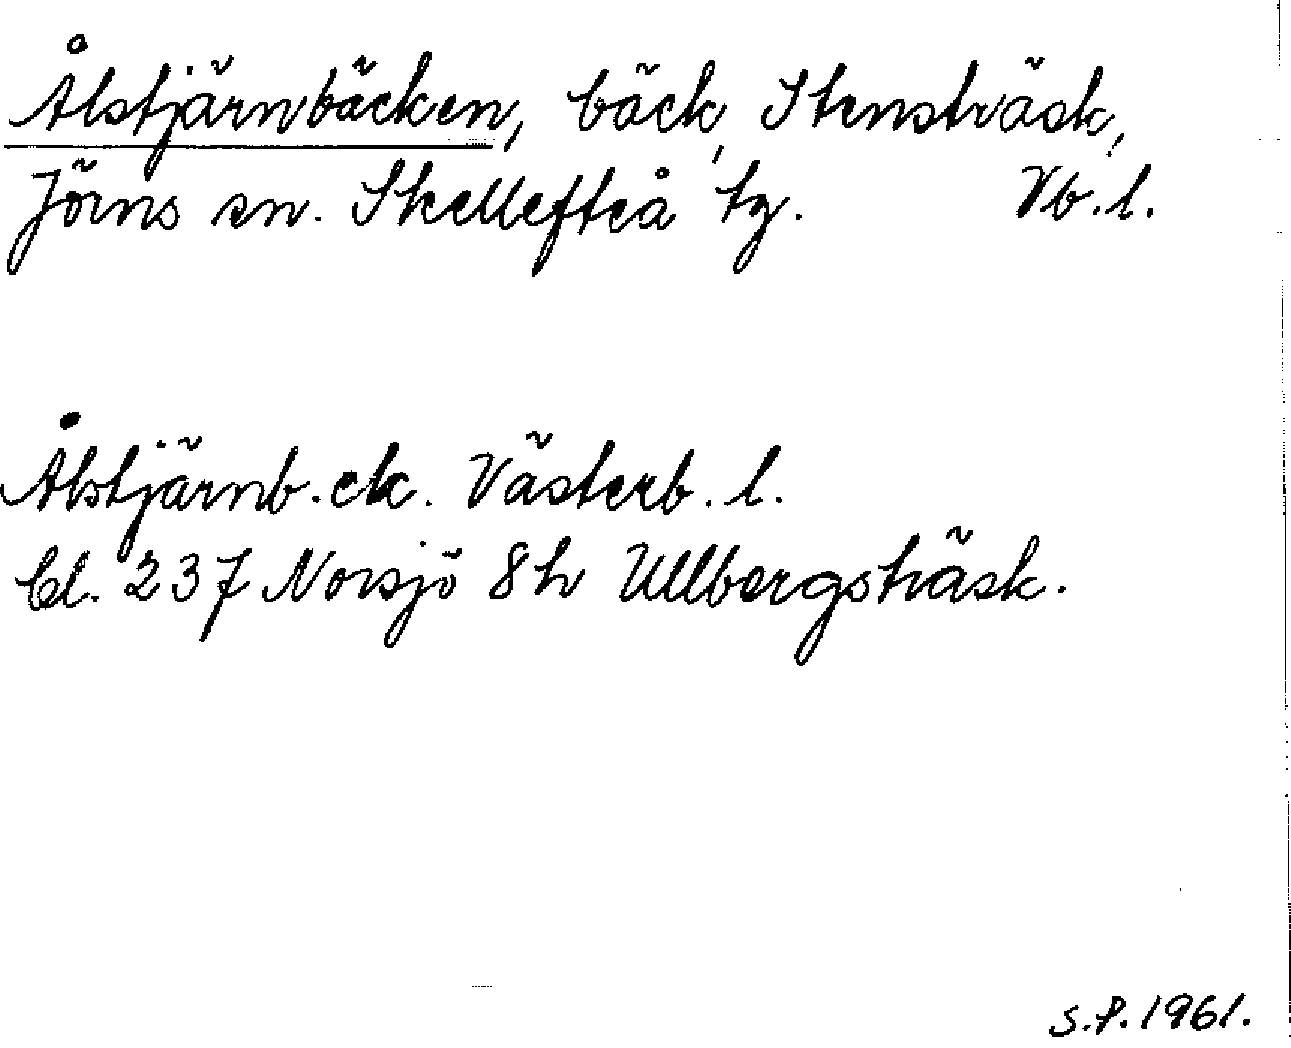 Ålstjärnbäcken, bäck, Stensträsk,
Jörns sn. Skellefteå tg. Vb.l.
Ålstjärnb. ek. Västerb. l.
bl. 237 Norsjö 8h Ullbergsträsk.
S.P. 1961.